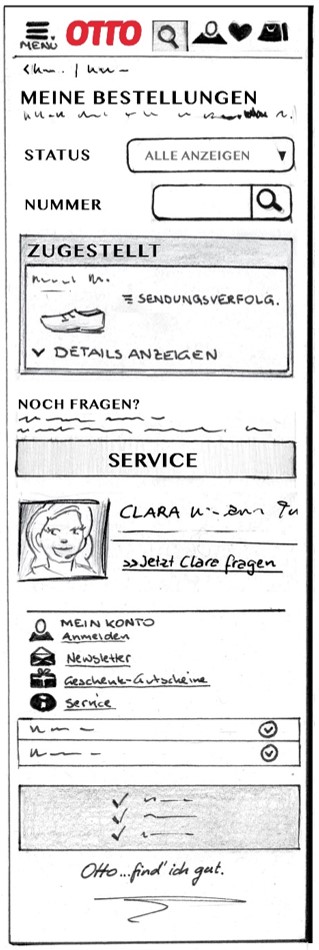 MENÜ OTTO
MEINE BESTELLUNGEN
STATUS ALLE ANZEIGEN
NUMMER
ZUGESTELLT
SENDUNGSVERFOLG.
DETAILS ANZEIGEN
NOCH FRAGEN?
SERVICE
CLARA
>>Jetzt Clara fragen
MEIN KONTO
Anmelden
Newsletter
Geschenk-Gutscheine
Service
Otto...find' ich gut.